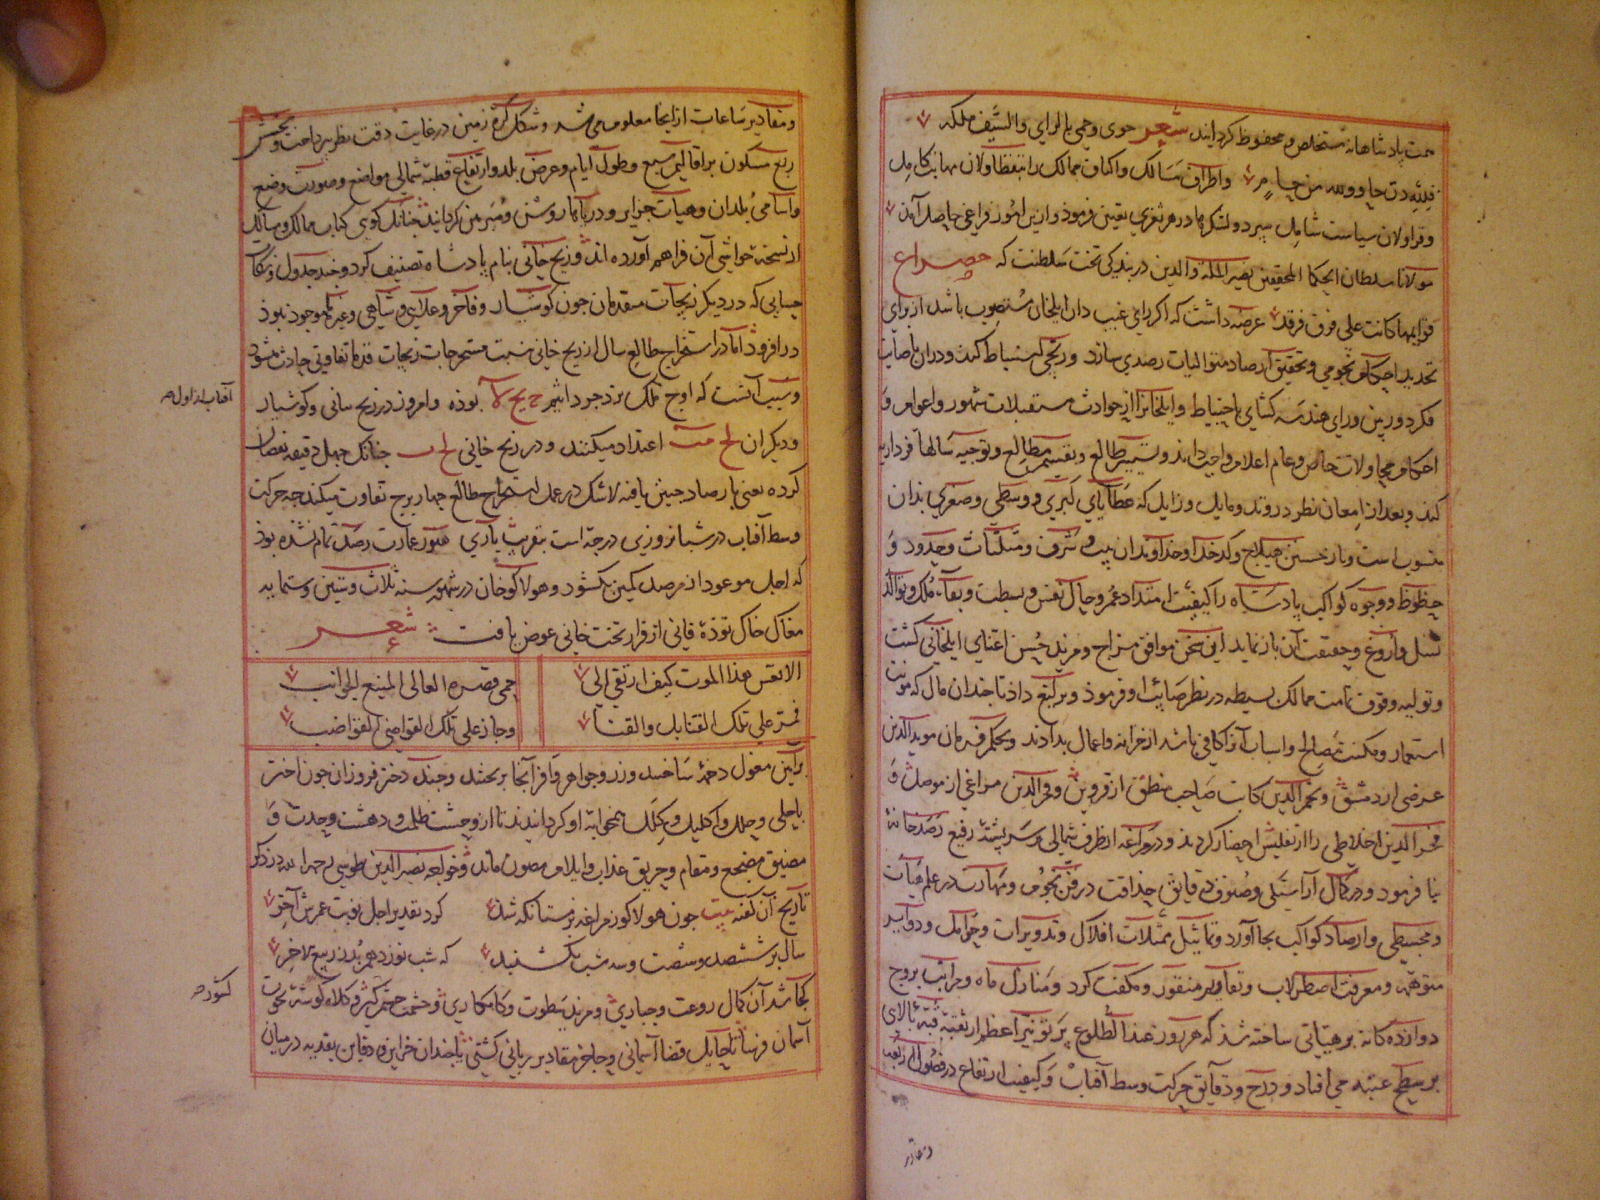 همت پادشاهانه مستخلص و محفوظ کردانید شعر حوی وحمی بالرای والسیف ملکه
فلله من حاو ولله من حام و اطراف مسالک و اکناف ممالک را بتیقظ اولان مهابت کامل
و قراولان سیاست شامل سپرد و لشکرها در هر ثغری تعیین فرمود و ازین امور فراغی حاصل آمد
مولانا سلطان الحکما المحققین نصیر الملة والدین در بندکی تخت سلطنت که مصراع
قوایمها کانت علی فوق فرقد عرضه داشت که اکر رای غیب دان ایلخان مستصوب باشد از برای
تجدید احکام نجومی و تحقیق ارصاد متوالیات رصدی سازد و زیجی استنباط کند و دران باصابت
فکر دوربین و رای هندسه کشای باحتیاط و ایلخانرا از حوادث مستقبلات شهور و اعوام و
احکام و محاولات خاص و عام اعلام واجب داند و تسییر طالع و تقسیم مطالع و توجیه سالها
کند و بعد از امعان نظر در وتد و مایل و زایل که عطایای کبری و وسطی و صغری بدان
منسوب است و باز جستن هیلاج و کدخدا و خداوندان بیت و شرف و مثلثات و حدود و
حظوظ و وجوه کواکب پادشاه را کیفیت امتداد عمر و حال نفس و بسطت و بقاء ملک و توالد
نسل و اروغ و حقیقت آن بازنماید این سخن موافق مزاج و مزید حسن اعتنای ایلخانی کشت
و تولیه وقوف تمامت ممالک بسیطه در نظر صایب او فرمود و یرلیغ داد تا چندان مال که مونت
استعمار و مکنت مصالح و اسباب آنرا کافی باشد از خزانه و اعمال بدادند و بحکم فرمان مویدالدین
عرضی از دمشق و نجم الدین کاتب صاحب منطق از قزوین و فخر الدین مراغی از موصل و
فخر الدین اخلاطی را از تفلیس احضار کردند و در مراغه از طرف شمالی بر سر پشته رفیع رصدخانه
بنا فرمود و در کمال آراستکی و صنوف دقایق حذاقت در فن نجوم و مهارت در علم هیأت
و مجسطی و ارصاد کواکب بجا آورد و تماثیل ممثلات افلاک و تدویرات و حوامل و دوایر
متوهمه و معرفت اصطرلاب و تقاویم و منازل ماه و مراتب بروج
دوازده کانه بر هیأتی ساخته شد که هر روز عند الطلوع پرتو نیر اعظم از ثقبه قبه بالای
بر سطح عتبه می افتاد و درج و دقایق حرکت وسط آفتاب و کیفیت ارتفاع در فصول اربعه
و مقادیر
و مقادیر ساعات از آنجا معلوم می شد و شکل کره زمین در غایت دقت نظر بپرداخت و بخش
ربع مسکون بر اقالیم سبع و طول ایام و عرض بلد و ارتفاع قطب شمالی مواضع و صورت وضع
و اسامی بلدان و هیأت جزایر و دریاها روشن و مبرهن کردانید چنانک کویی کتاب ممالک و مسالک
از نسخه حواشی آن فراهم آورده اند و زیج خانی بنام پادشاه تصنیف کرد و چند جدول
حسابی که در دیکر زیجات متقدمان چون کوشیار و فاخر و علایی و شاهی و غیرهم موجود نبود
درافزود اما در استخراج طالع سال از زیج خانی نسبت مستخرجات زیجات قدما تفاوتی حادث میشود
و سبب آنست که اوج فلک یزدجرد بوده و امروز در زیج و کوشیار
آفتاب از اول صح
و دیکران اعتداد میکنند و در زیج خانی چنانک چهل دقیقه نقصان
کرده یعنی بارصاد چنین یافته لاشک در عمل استخراج طالع چهار برج تفاوت میکند چه حرکت
وسط آفتاب در شبانروزی درجه است بتقریب باری هنوز عمارت رصد تمام نشده بود
که اجل موعود از مرصد کمین بکشود و هولاکو خان در شهور سنه ثلاث و ستین و ستمایه
مغاک خاک توده فانی از قرار تخت خانی عوض یافت شعر
الا تعس هذا الموت کیف ارتقی الی حمی قصره العالی المنیع الجوانب
فمر علی تلک القنابل والقنا وجاز علی تلک القواضی القواضب
بر آیین مغول دخمه ساختند و زر و جواهر وافر آنجا بریختند و چند دختر فروزان چون اختر
با حلی و حلل و اکلیل و کلل همخوابه او کردانیدند تا از وحشت ظلمت و دهشت وحدت و
مضیق مضجع و مقام و حریق عذاب و ایلام مصون ماند و خواجه نصیر الدین طوسی رحمه الله در ذکر
تاریخ آن کفته بیت چون هولاکو ز مراغه بزمستانکه شد کرد تقدیر اجل نوبت عمرش آخر
سال بر ششصد و شصت و سه شب یکشنبد که شب نوزدهم بد ز ربیع الاخر
کجا شد آن کمال روعت و جباری و مزید سطوت و کامکاری و حشمت
کشور صح
آسمان فرسا تا حایل قضا آسمانی و حاجز مقادیر ربانی کشتی تا چندان خزاین و دفاین بفدیه در میان